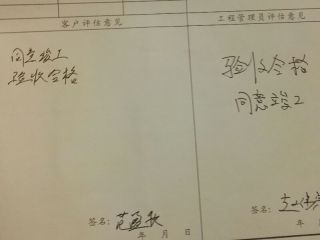 客户评估意见
工程管理员评估意见
同意竣工
验收合格
验收合格
同意竣工
签名：
年 月 日
签名：
年